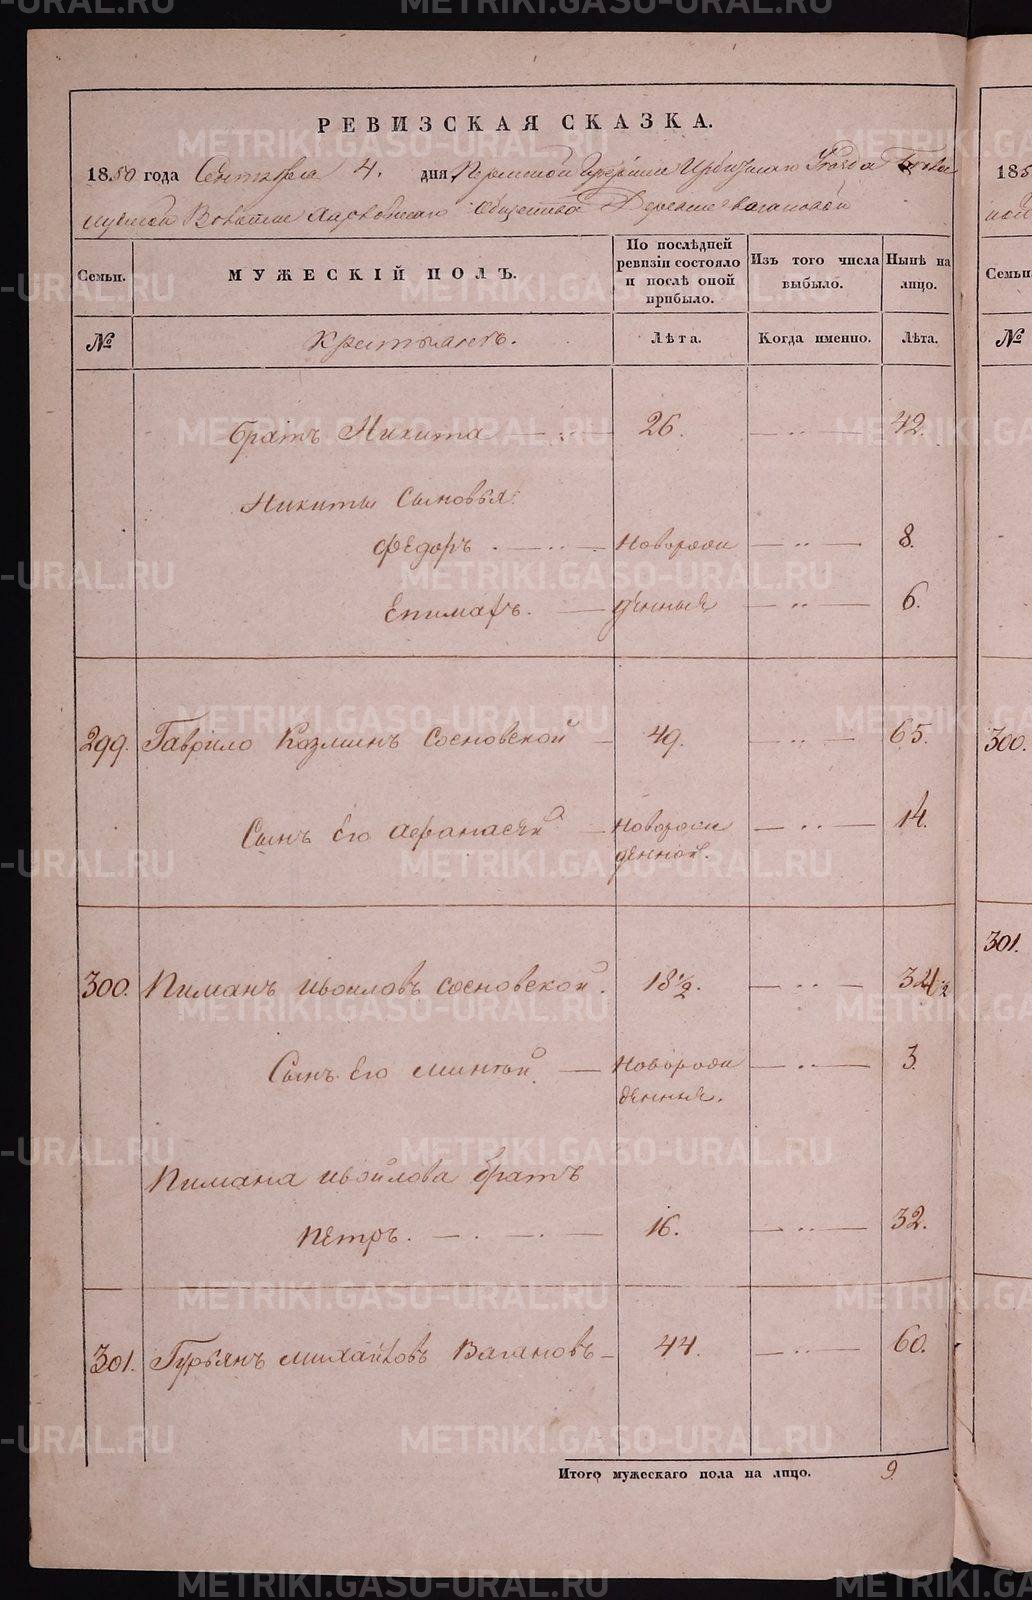 РЕВИЗСКАЯ СКАЗКА.
1850 года Сентября 4. дня Пермской Губернии Ирбитскаго Уезда
Волости Харловскаго Общества Деревне Вагановой
Семьи. МУЖЕСКІЙ ПОЛЪ. По послѣдней ревизіи состояло и послѣ оной прибыло. Изъ того числа выбыло. Нынѣ на лицо.
№ Крестьянъ. Лѣта. Когда именно. Лѣта.
братъ Никита 26. 42.
Никиты Сыновья:
Федоръ Новорож 8.
Епимахъ. денные 6.
299. Гаврило Козминъ Сосновской 49. 65.
Сынъ Его Афанасей Новорож 14.
денной.
300. Пиманъ Ивоиловъ Сосновской. 18 1/2. 34 1/2
Сынъ Его Минъей Новорож 3.
денные.
Пимана Ивойлова братъ
Петръ. 16. 32.
301. Гурьянъ Михайловъ Вагановъ 44. 60.
Итого мужескаго пола на лицо. 9.
185
Семьи
№
300.
301.
METRIKI.GASO-URAL.RU